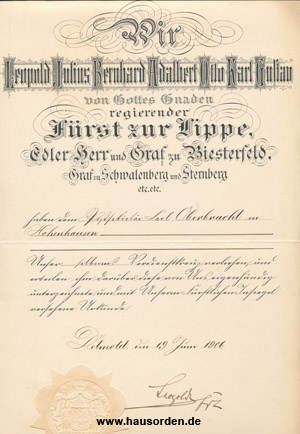 Wir
Leopold Julius Bernhard Adalbert Otto Karl Gustav
von Gottes Gnaden
regierender
Fürst zur Lippe,
Edler Herr und Graf zu Biesterfeld,
Graf zu Schwalenberg und Sternberg
etc. etc.
haben dem Oberbracht in
Hohenhausen
Unser silbernes Verdienstkreuz verliehen, und
erteilen ihm darüber diese von Uns eigenhändig
unterzeichnete und mit Unserm Fürstlichen Insiegel
versehene Urkunde.
Detmold, den 19 Juni 1906
Leopold
www.hausorden.de